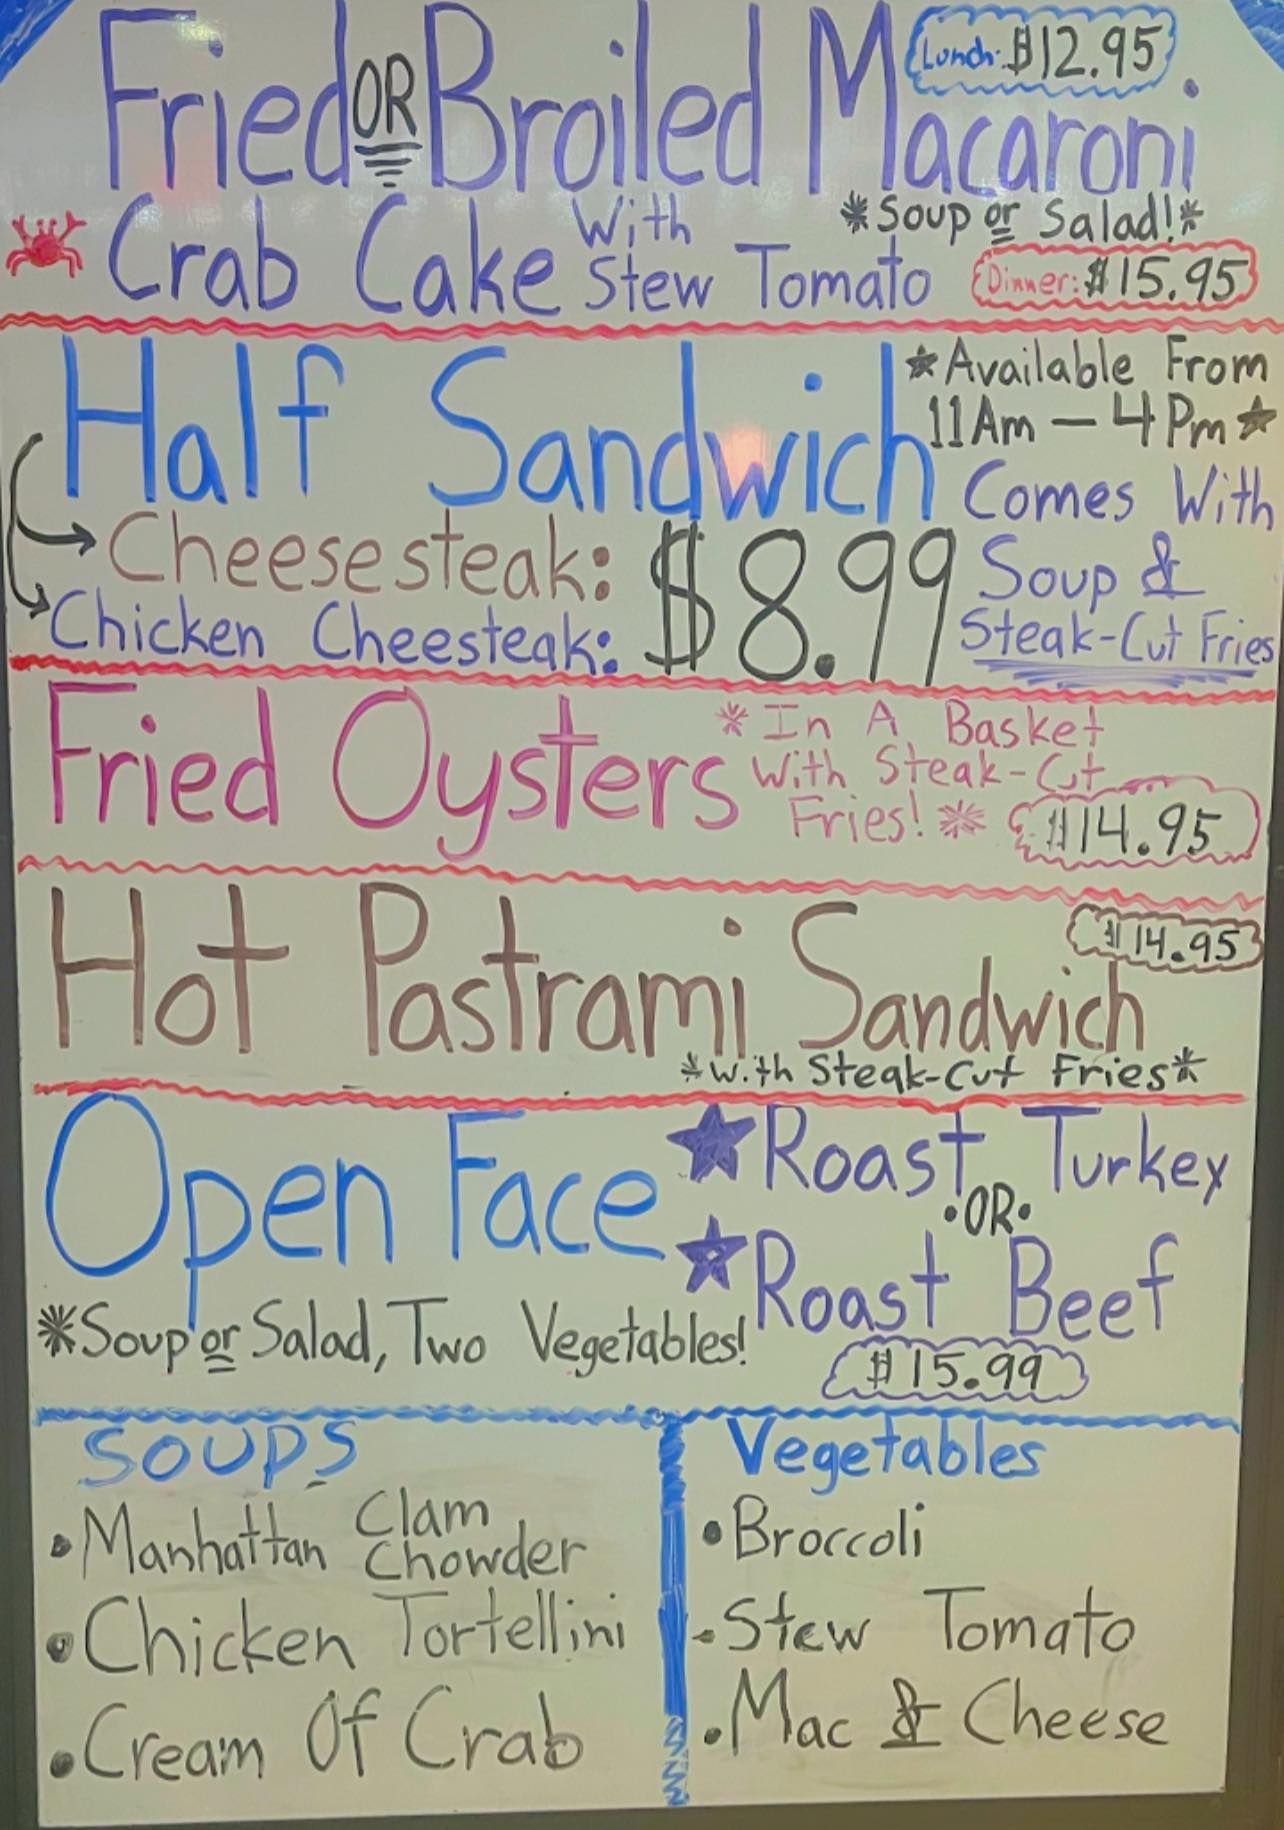 Lunch: $12.95
Fried OR Broiled Macaroni
*Soup or Salad!*
Crab Cake With Stew Tomato
Dinner: $15.95
Half Sandwich
★Available From
11Am – 4Pm★
Cheesesteak:
Chicken Cheesteak:
$8.99
Comes With
Soup &
Steak-Cut Fries
Fried Oysters
*In A Basket
With Steak-Cut
Fries!*
$14.95
Hot Pastrami Sandwich
$14.95
*With Steak-Cut Fries*
Open Face
★Roast Turkey
•OR•
★Roast Beef
*Soup or Salad, Two Vegetables!
$15.99
SOUPS
•Manhattan Clam Chowder
•Chicken Tortellini
•Cream Of Crab
Vegetables
•Broccoli
•Stew Tomato
•Mac & Cheese